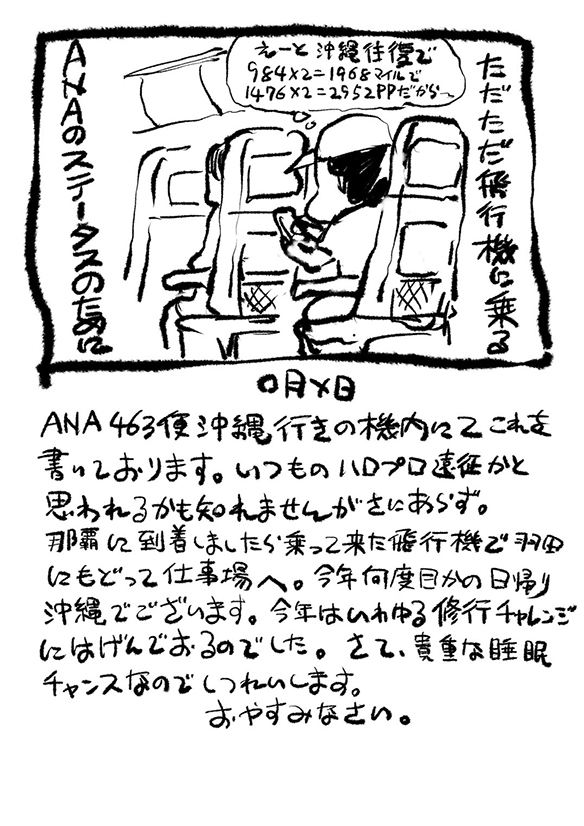 ただただ飛行機に乗る
えーと 沖縄往復で
984×2=1968マイルで
1476×2=2952PPだから〜
ANAのステータスのために
○月×日
ANA463便沖縄行きの機内にてこれを
書いております。いつものハロプロ遠征かと
思われるかも知れませんがさにあらず。
那覇に到着しましたら乗って来た飛行機で羽田
にもどって仕事場へ。今年何度目かの日帰り
沖縄でございます。今年はいわゆる修行チャレンジ
にはげんでおるのでした。さて、貴重な睡眠
チャンスなのでしつれいします。
おやすみなさい。